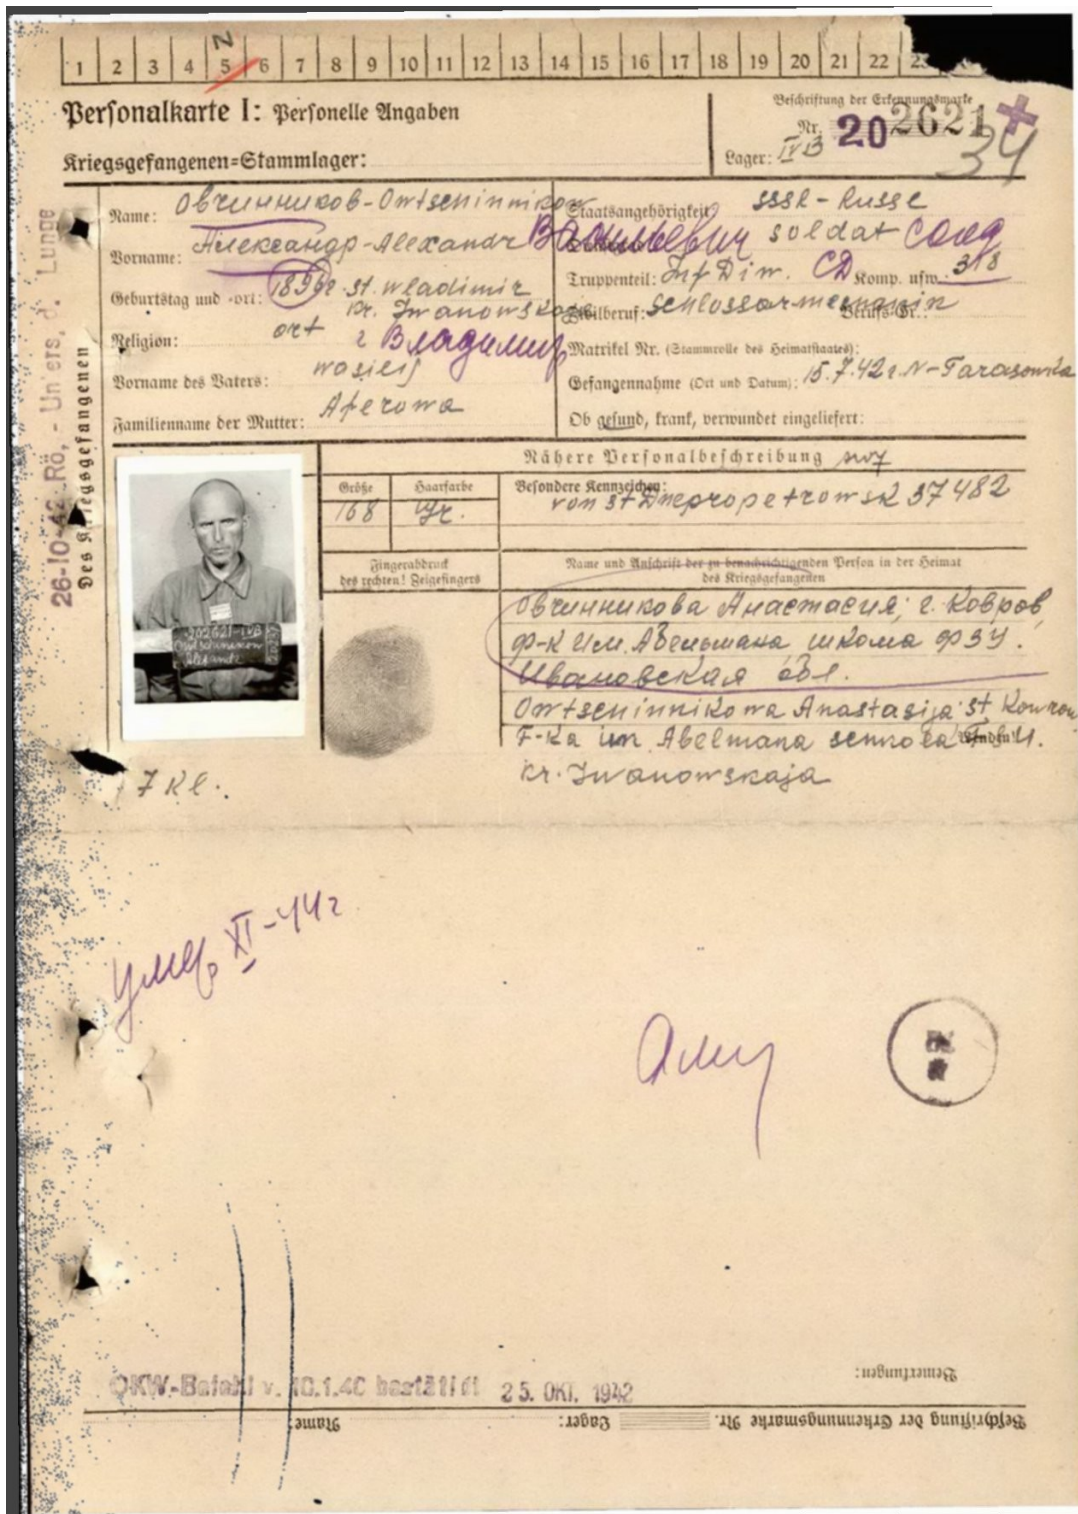 1 2 3 4 5 6 7 8 9 10 11 12 13 14 15 16 17 18 19 20 21 22
N
Personalkarte I: Personelle Angaben
Kriegsgefangenen=Stammlager:
Beschriftung der Erkennungsmarke
Nr. 202621
34
Lager: IV B
26-10-42 Rö.-Un'ers. d. Lunge
Des Kriegsgefangenen
Name: Овчинников-Owtschinnikow
Vorname: Александр-Alexandr Васильевич
Geburtstag und -ort: 1896 г. st. Wladimir
kr. Iwanowskaja
ort г Владимир
Religion:
Vorname des Vaters: Wasilij
Familienname der Mutter: Aferowa
Staatsangehörigkeit: SSSR-Russe
soldat солд
Truppenteil: Inf Diw. СД Komp. usw. 318
Zivilberuf: Schlossar Berufs-Gr.:
Matrikel Nr. (Stammrolle des Heimatstaates):
Gefangennahme (Ort und Datum): 15.7.42 г. N-Tarasowka
Ob gesund, krank, verwundet eingeliefert:
Nähere Personalbeschreibung
Größe Haarfarbe Besondere Kennzeichen:
168 von st Dnepropetrowsk 37482
Fingerabdruck
des rechten! Zeigefingers
Name und Anschrift der zu benachrichtigenden Person in der Heimat
des Kriegsgefangenen
202621-IVB
Овчинникова Анастасия; г. Ковров
ф-к им. Абельмана школа ФЗУ.
Ивановская обл.
Owtschinnikowa Anastasija st Kowrow
F-Ka im Abelmana schkola
Wenden!
kr. Iwanowskaja
7 Kl.
умер XI-44г
OKW.-Befehl v. 10.1.40 bestätigt 25. OKT. 1942
Bemerkungen:
Name: Lager: Beschriftung der Erkennungsmarke Nr.